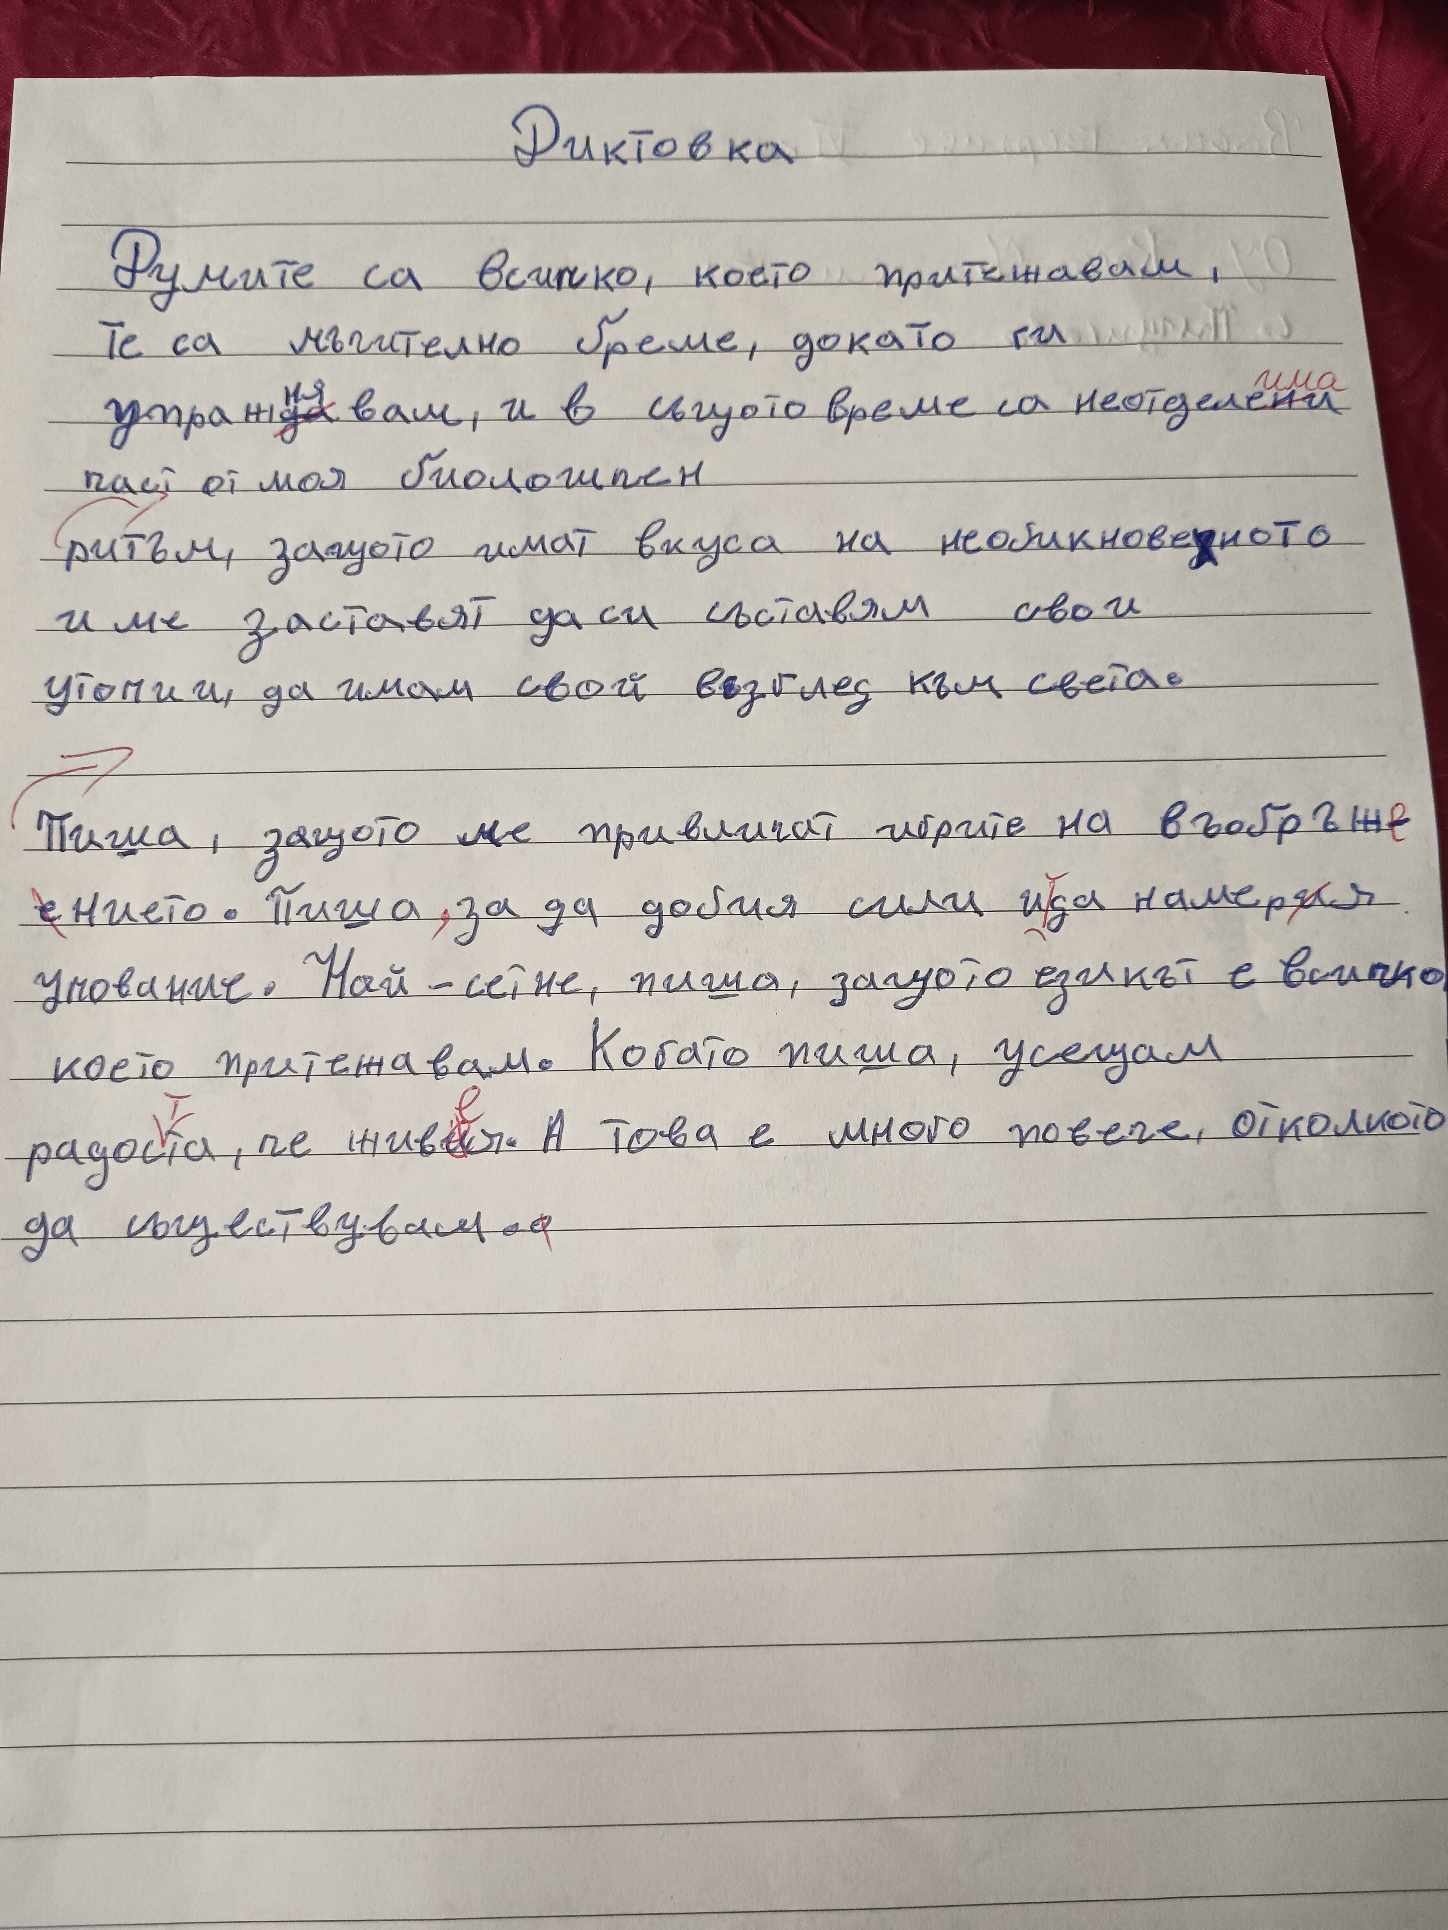 Диктовка
Думите са всичко, което притежавам,
те са мъчително бреме, докато ги
има
ня
упраждавам, и в същото време са неотделени
част от моя биологичен
ритъм, защото имат вкуса на необикновеното
и ме заставят да си съставям свои
утопии, да имам свой възглед към света.
Пиша, защото ме привличат игрите на въобръже
ението. Пиша, за да добия сили и да намеря
упование. Най-сетне, пиша, защото езикът е всичко,
което притежавам. Когато пиша, усещам
т
е
радоста, че живея. А това е много повече, отколкото
да съществувам.